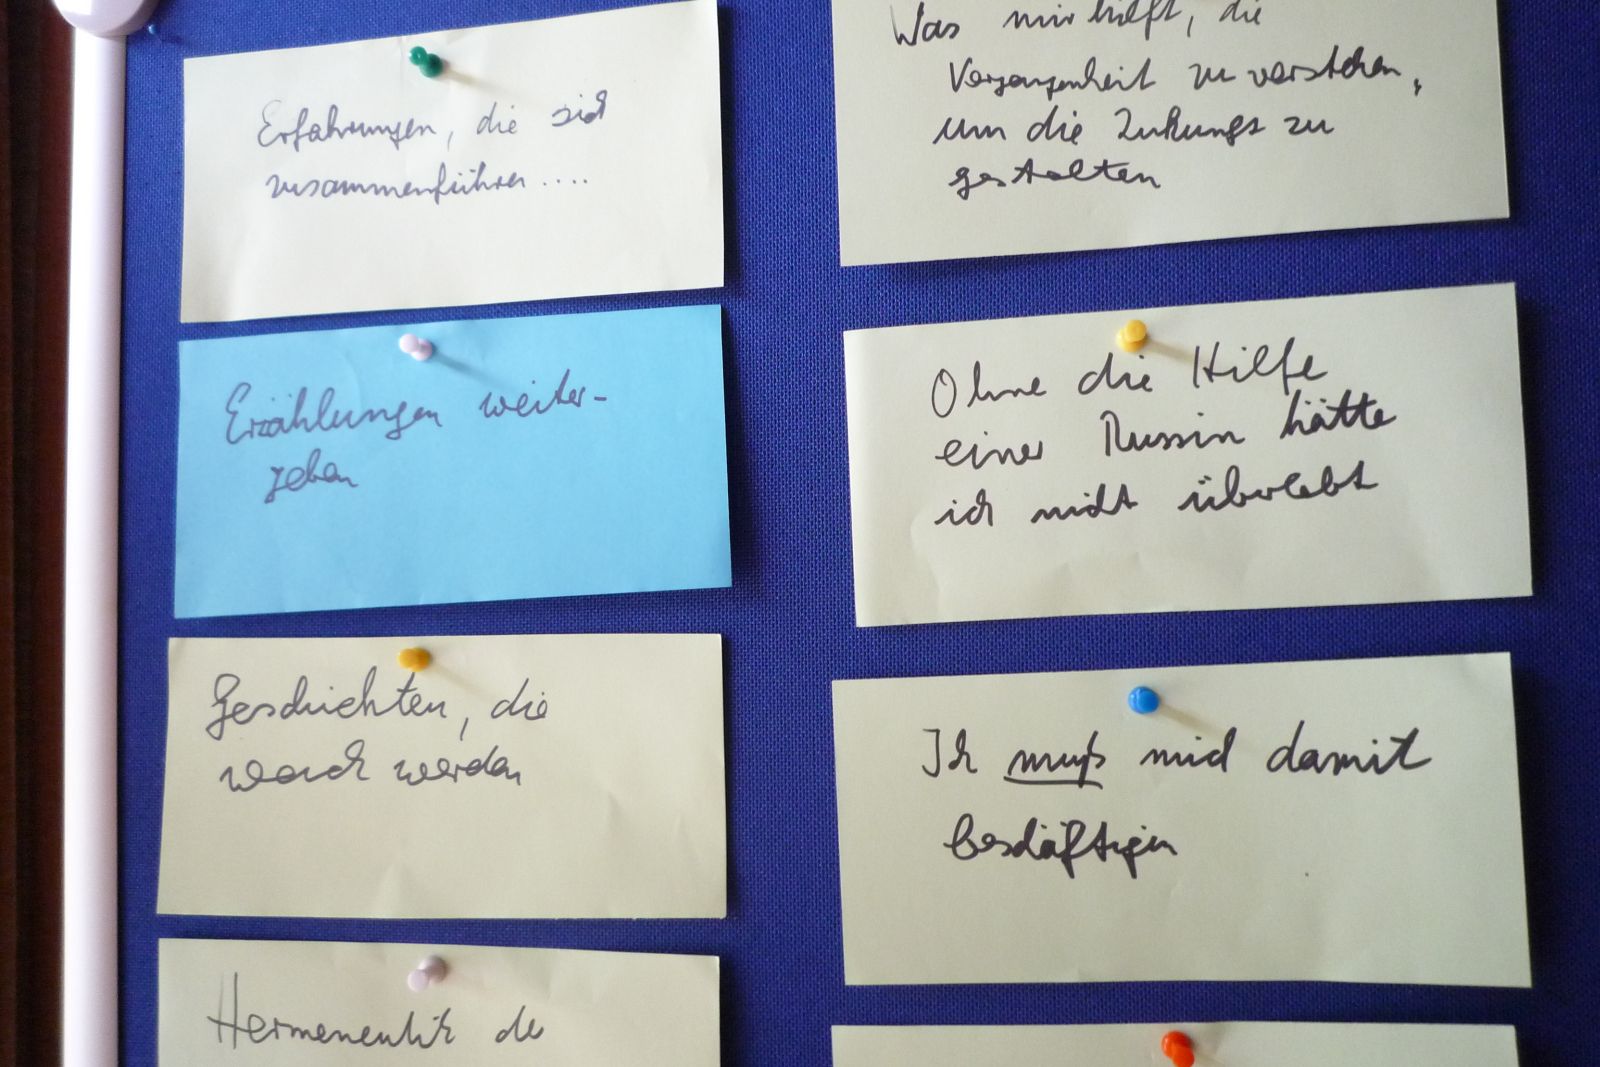 Erfahrungen, die sich
zusammenführen ....
Erzählungen weiter-
geben
Geschichten, die
wach werden
Hermeneutik der
Was mir hilft, die
Vergangenheit zu verstehen,
um die Zukunft zu
gestalten
Ohne die Hilfe
einer Russin hätte
ich nicht überlebt
Ich muß mich damit
beschäftigen